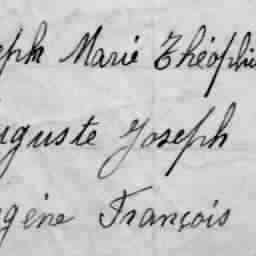 eph Marie Théophi
uguste Joseph
gène François